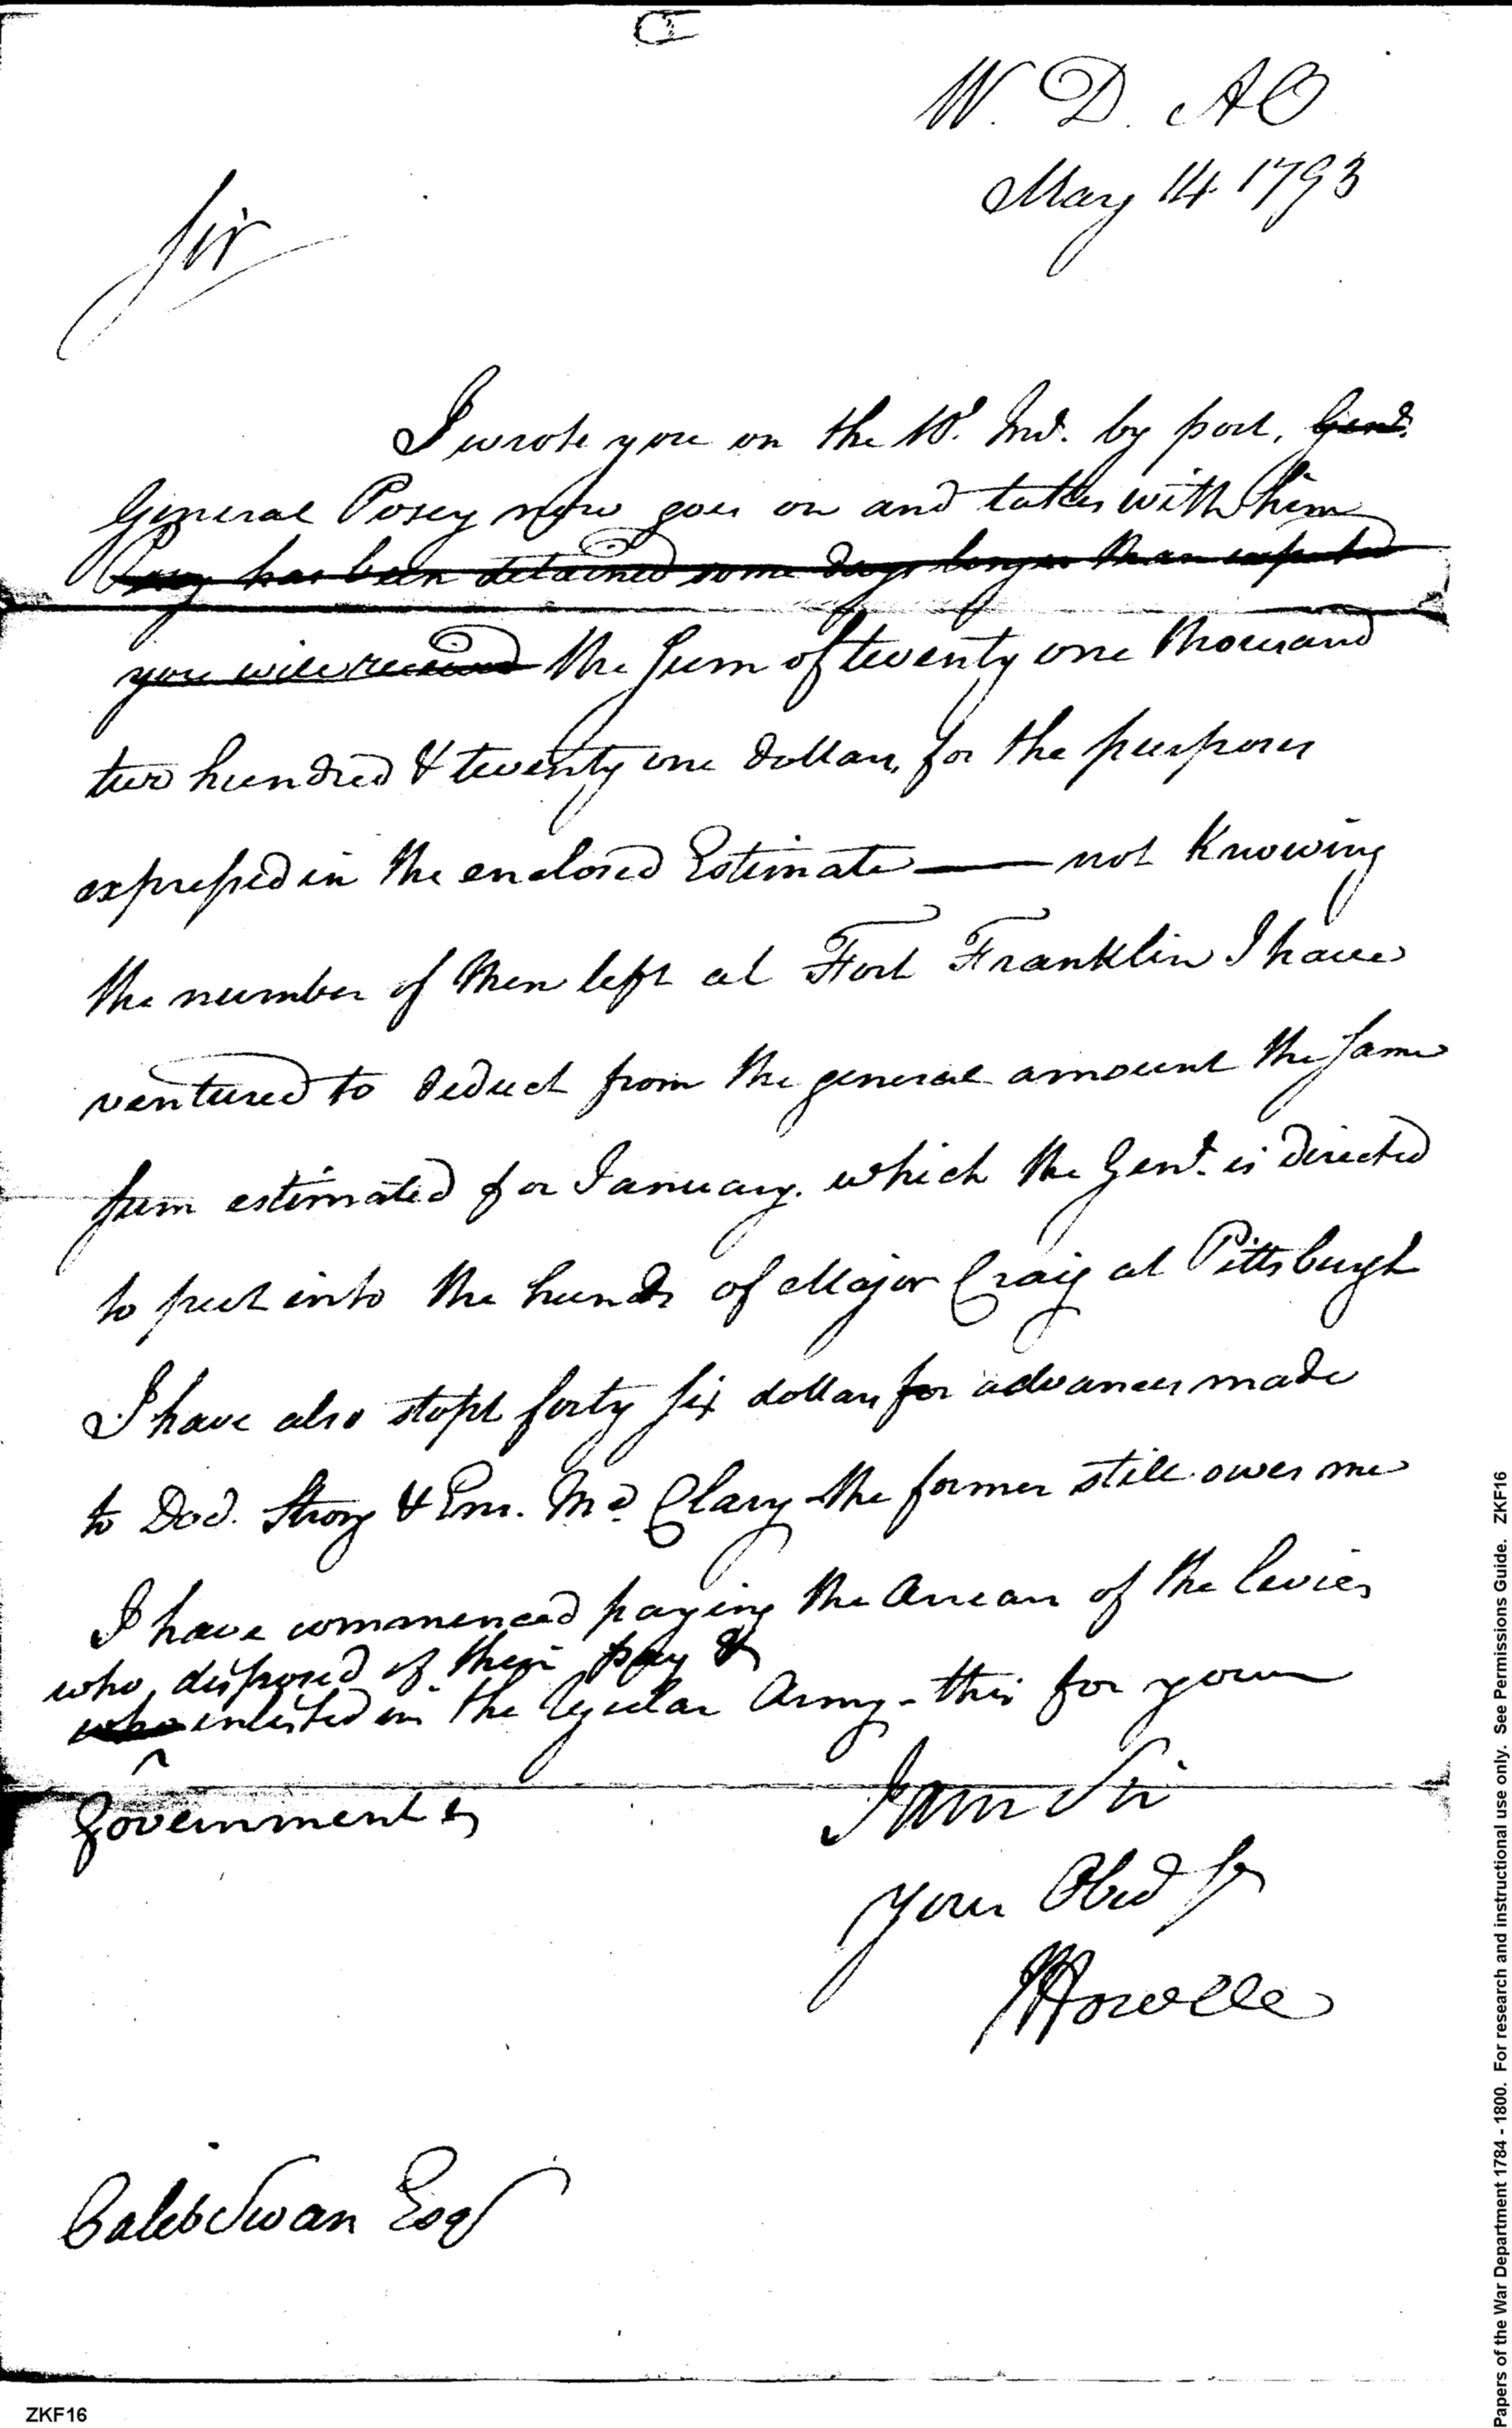 W. D. AO
May 14 1793
Sir
I wrote you on the 10th. Inst. by post. Genl.
General Posey now goes on and takes with him
Posey has been detained some days longer than expected
you will received the Sum of twenty one thousand
two hundred & twenty one dollars, for the purposes
expressed in the enclosed Estimate — not Knowing
the number of Men left at Fort Franklin I have
ventured to deduct from the general amount the Same
Sum estimated for January. which the Genl. is directed
to put into the hands of Major Craig at Pittsburgh
I have also stopt forty six dollars for advances made
to Doct. Strong & Ens. Mc Clary - the former still owes me
I have commenced paying the Arrears of the levies
who disposed of their pay &
who enlisted in the regular Army - this for your
Government &
I am Sir
your Obed Sr
JHowell
Caleb Swan Esqr
ZKF16
Papers of the War Department 1784 - 1800. For research and instructional use only. See Permissions Guide. ZKF16